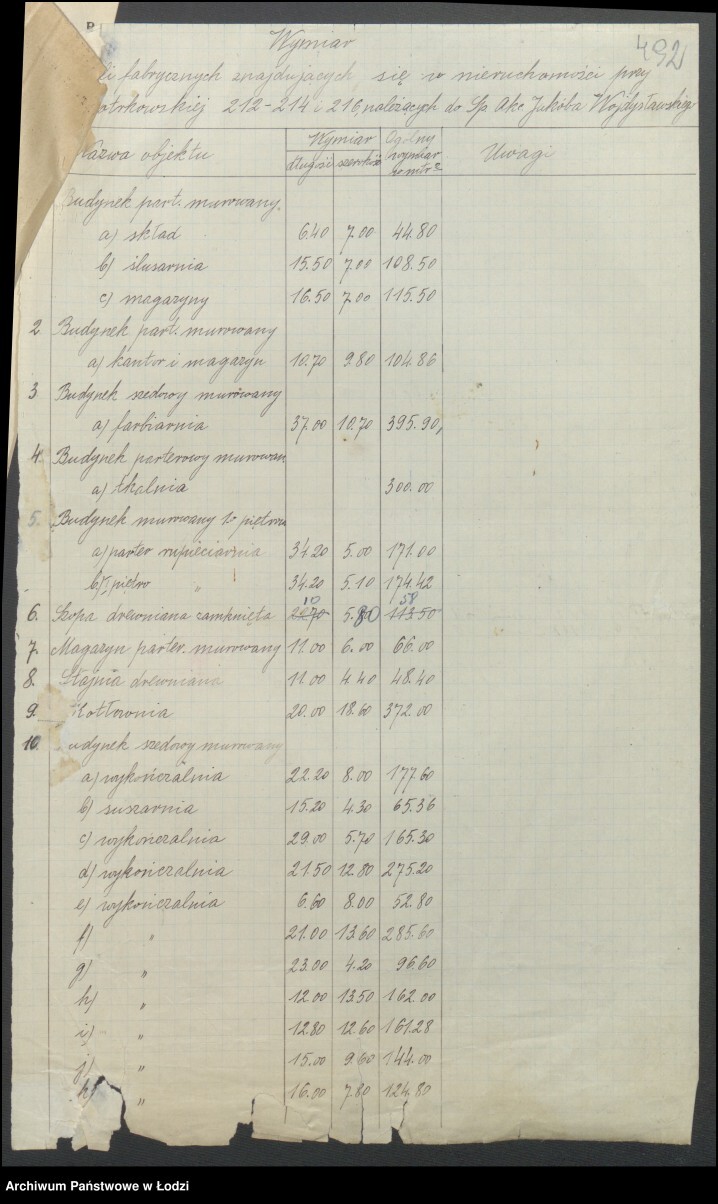 492
Wymiar
li fabrycznych znajdujących się w nieruchomości przy
otrkowskiej 212-214 i 216, należących do Sp. Akc. Jakóba Wojdysławskiego
Nazwa objektu Wymiar Ogólny wymiar w mtr² Uwagi
długość szerokość
Budynek part. murowany.
a) skład 6.40 7.00 44.80
b) ślusarnia 15.50 7.00 108.50
c) magazyny 16.50 7.00 115.50
2 Budynek part. murowany
a) kantor i magazyn 10.70 9.80 104.86
3 Budynek szedowy murowany
a) farbiarnia 37.00 10.70 395.90,
4. Budynek parterowy murowan
a) tkalnia 300.00
5. Budynek murowany 1-o piętrow
a) parter rupieciarnia 34.20 5.00 171.00
b) I piętro " 34.20 5.10 174.42
10 58
6. Szopa drewniana zamknięta 20.70 5.80 113.50
7. Magazyn parter. murowany 11.00 6.00 66.00
8. Stajnia drewniana 11.00 4.40 48.40
9. Kotłownia 20.00 18.60 372.00
10. udynek szedowy murowany
a) wykończalnia 22.20 8.00 177.60
b) suszarnia 15.20 4.30 65.36
c) wykończalnia 29.00 5.70 165.30
d) wykończalnia 21.50 12.80 275.20
e) wykończalnia 6.60 8.00 52.80
f) " 21.00 13.60 285.60
g) " 23.00 4.20 96.60
h) " 12.00 13.50 162.00
i) " 12.80 12.60 161.28
j) " 15.00 9.60 144.00
k) " 16.00 7.80 124.80
Archiwum Państwowe w Łodzi